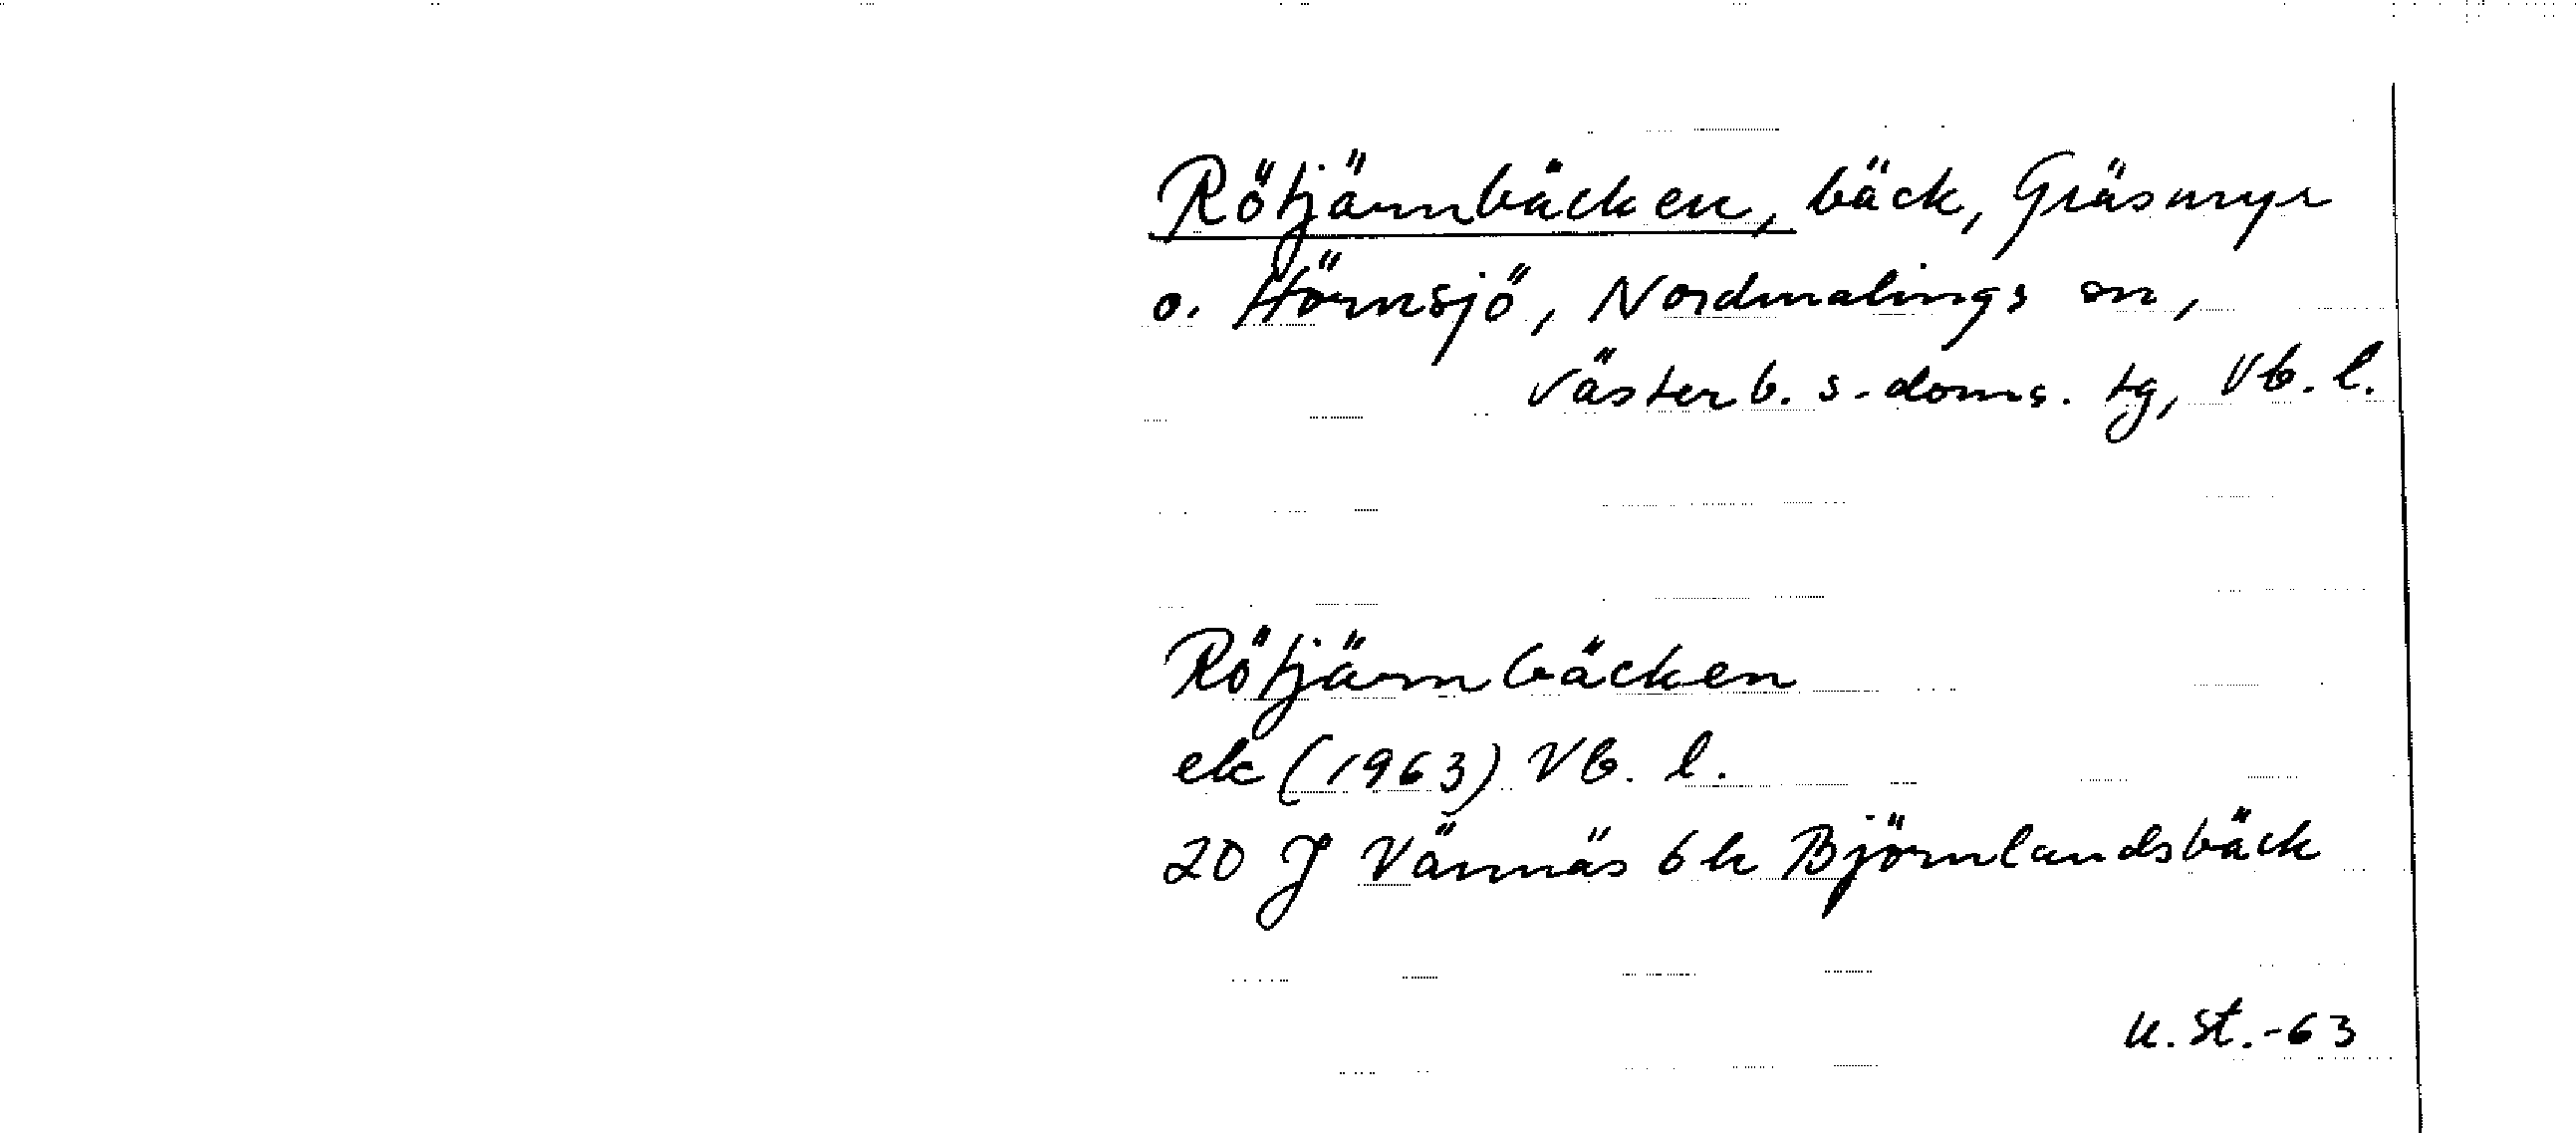 Rötjärnbäcken, bäck, Gräsmyr
o. Hörnsjö, Nordmalings sn,
Västerb. s. doms. tg, Vb. l.
Rötjärnbäcken
ek (1963) Vb. l.
20 J Vännäs 6 h Björnlandsbäck
U. St. -63